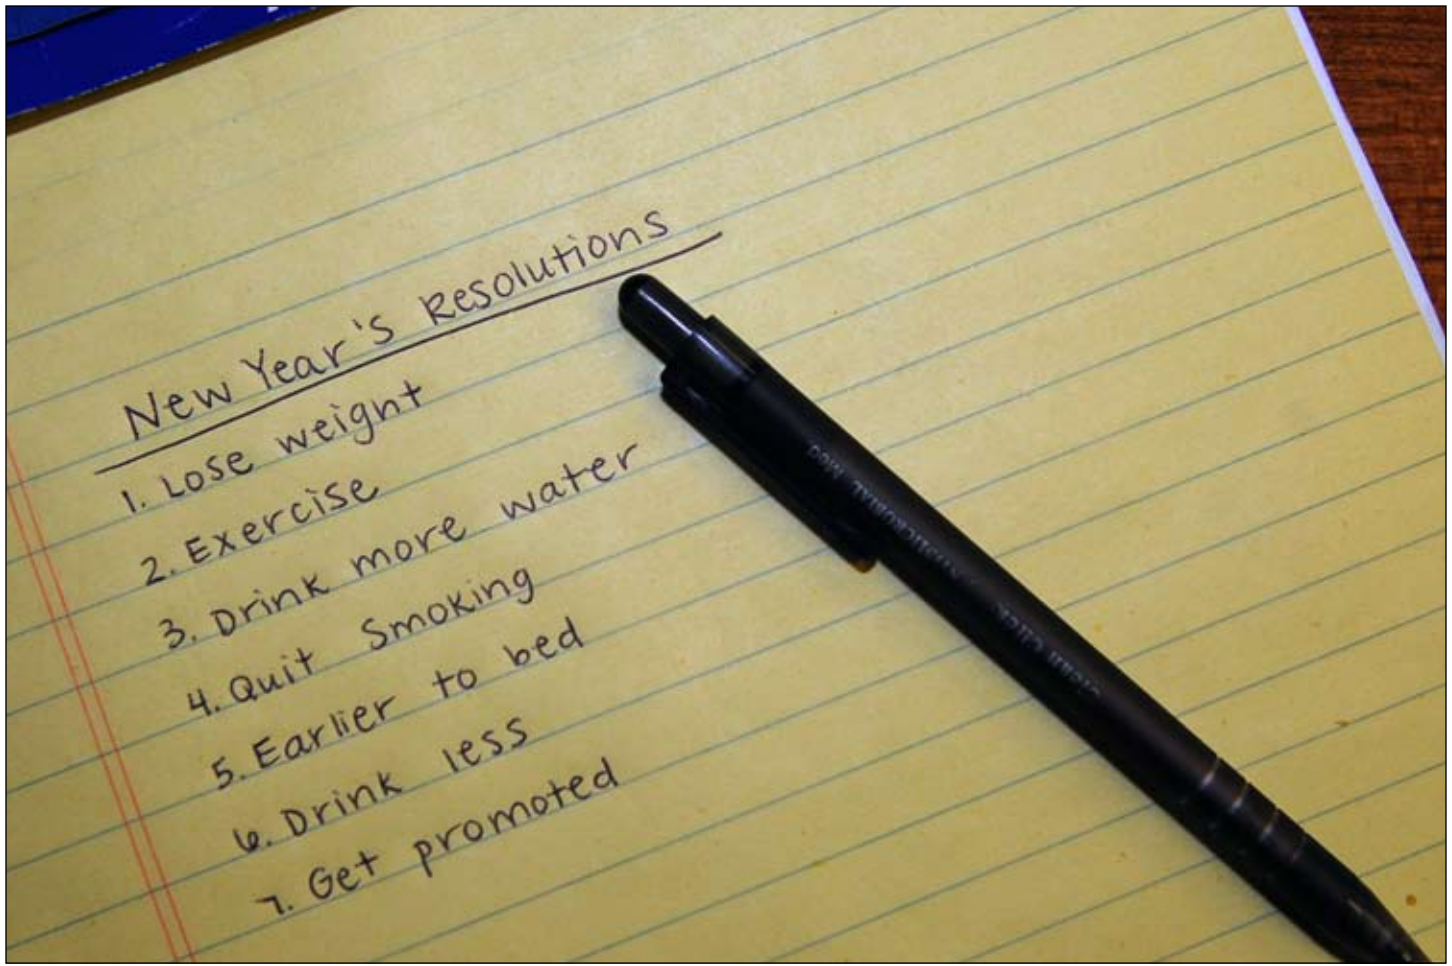 New Year's Resolutions
1. Lose weight
2. Exercise
3. Drink more water
4. Quit Smoking
5. Earlier to bed
6. Drink less
7. Get promoted